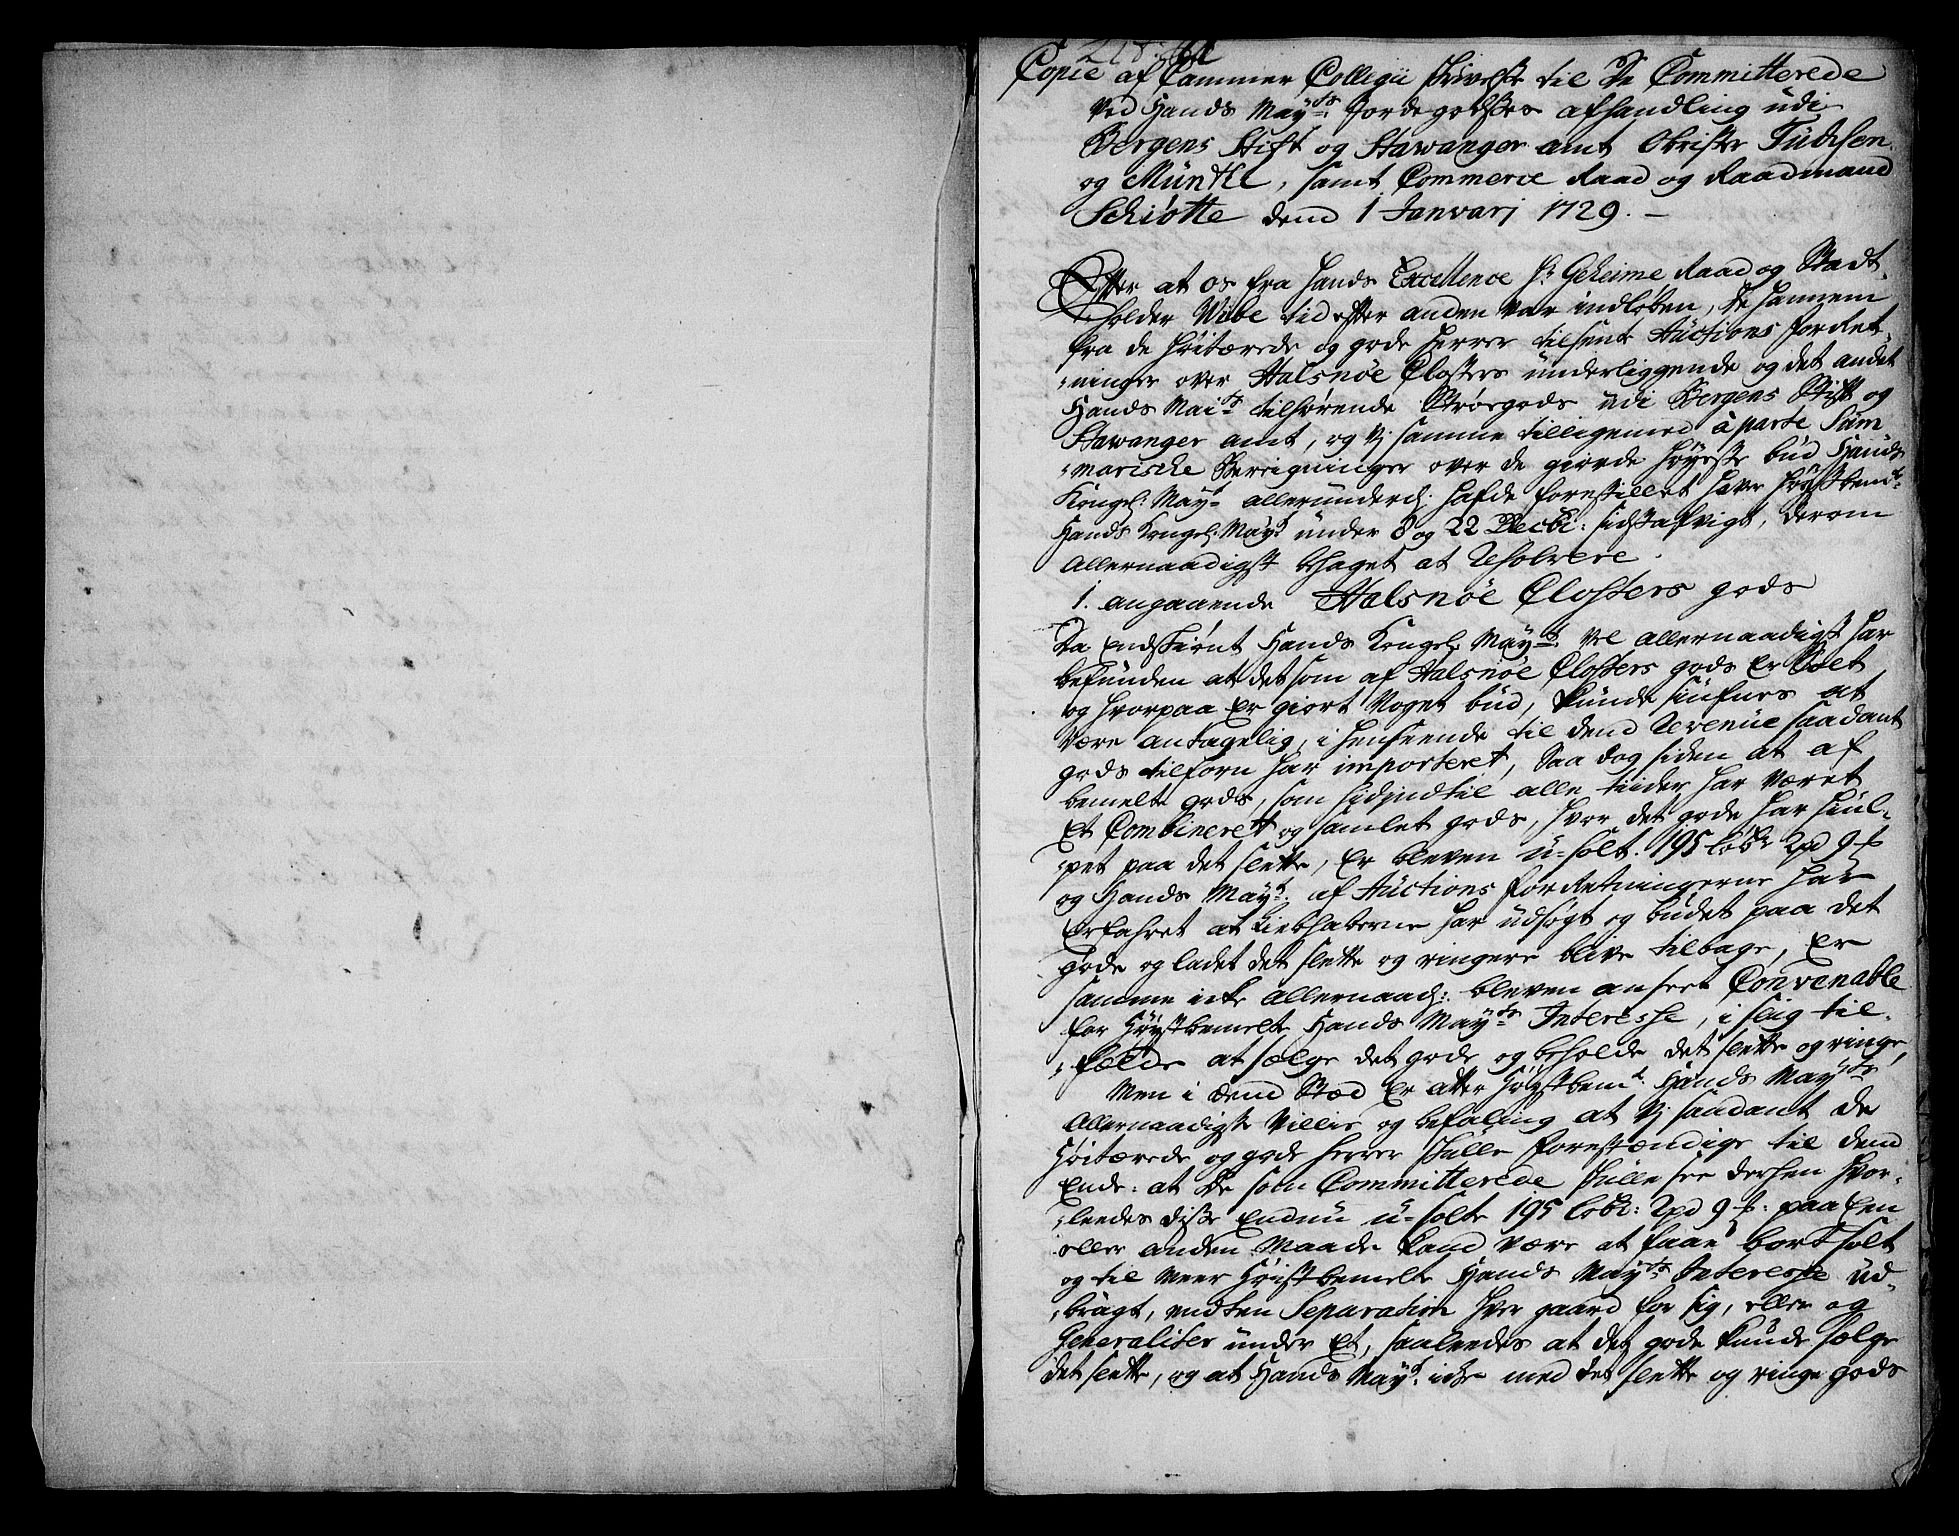 Copie af Cammer Collegii skrivelse til De Committerede
ved Hands May:ts Jordegodses afhandling udi
Bergens Stift og Stawanger amt Obrister Tuchsen
og Münthe, samt Commerce Raad og Raadmand
Schiøtte dend 1 Januarj 1729. –
Efter at os fra Hands Excellence Hr Geheime Raad og Stadt-
holder Wibe tid efter anden var indløben, de hannem
fra de Høitærede og gode Herrer tilsent Auctions forret-
ninger over Halsnøe Closters underliggende og det andet
Hands Mai:ts tilhørende Strøegods udi Bergens Stift og
Stawanger amt, og vj samme tilligemed à parte Sum-
marische Beregninger over de giorde høyeste bud Hands
Kongel: May:t allerunderd: hafde forestillet haver høystbem:te
Hands Kongel: May:t under 8 og 22 Decbr: sidstafvigt, derom
Allernaadigst behaget at Resolvere.
1. angaaende Halsnøe Closters gods
Da endskiønt Hands Kongel: May:t vel allernaadigst har
befunden at det som af Halsnøe Closters gods er Solt
og hvorpaa er giort noget bud, kunde siufnes at
være antagelig, i henseende til dend Revenüe saadant
gods tilforn har importeret, Saa dog siden at af
bemelte gods, som hidindtil alle tiider har været
et Combineret og samlet gods, hvor det gode har hiul-
pet paa det slette, er bleven u-solt 195 Løb: 2pd 9 
og Hands May:t af Auctions forretningerne har
erfahret at Liebhaberne har udsøgt og budet paa det
gode og ladet det slette og ringere blive tilbage, er
samme icke Allernaad: bleven anseet Convenable
for Høystbemelte Hands May:ts Interesse, i slig til-
fælde at sælge det gode og beholde det slette og ringe,
Men i dend Sted er atter Høystbem:te Hands May:ts
Allernaadigste Villie og befaling at vj saadant de
Høitærede og gode Herrer skulle forestændige til dend
Ende: at de som Committerede skulle see dersen hvor-
leedes disse endnu u-solte 195 Løb: 2pd 9 paa een
eller anden maade kand være at faae bortsolt
og til meer Høistbemelte Hands May:ts Interesse ud-
bragt, endten Separation hver gaard for sig, eller og
Generaliter under et, saaleedes at det gode kunde sælge
det slette, og at Hands May:t icke med det slette og ringe gods